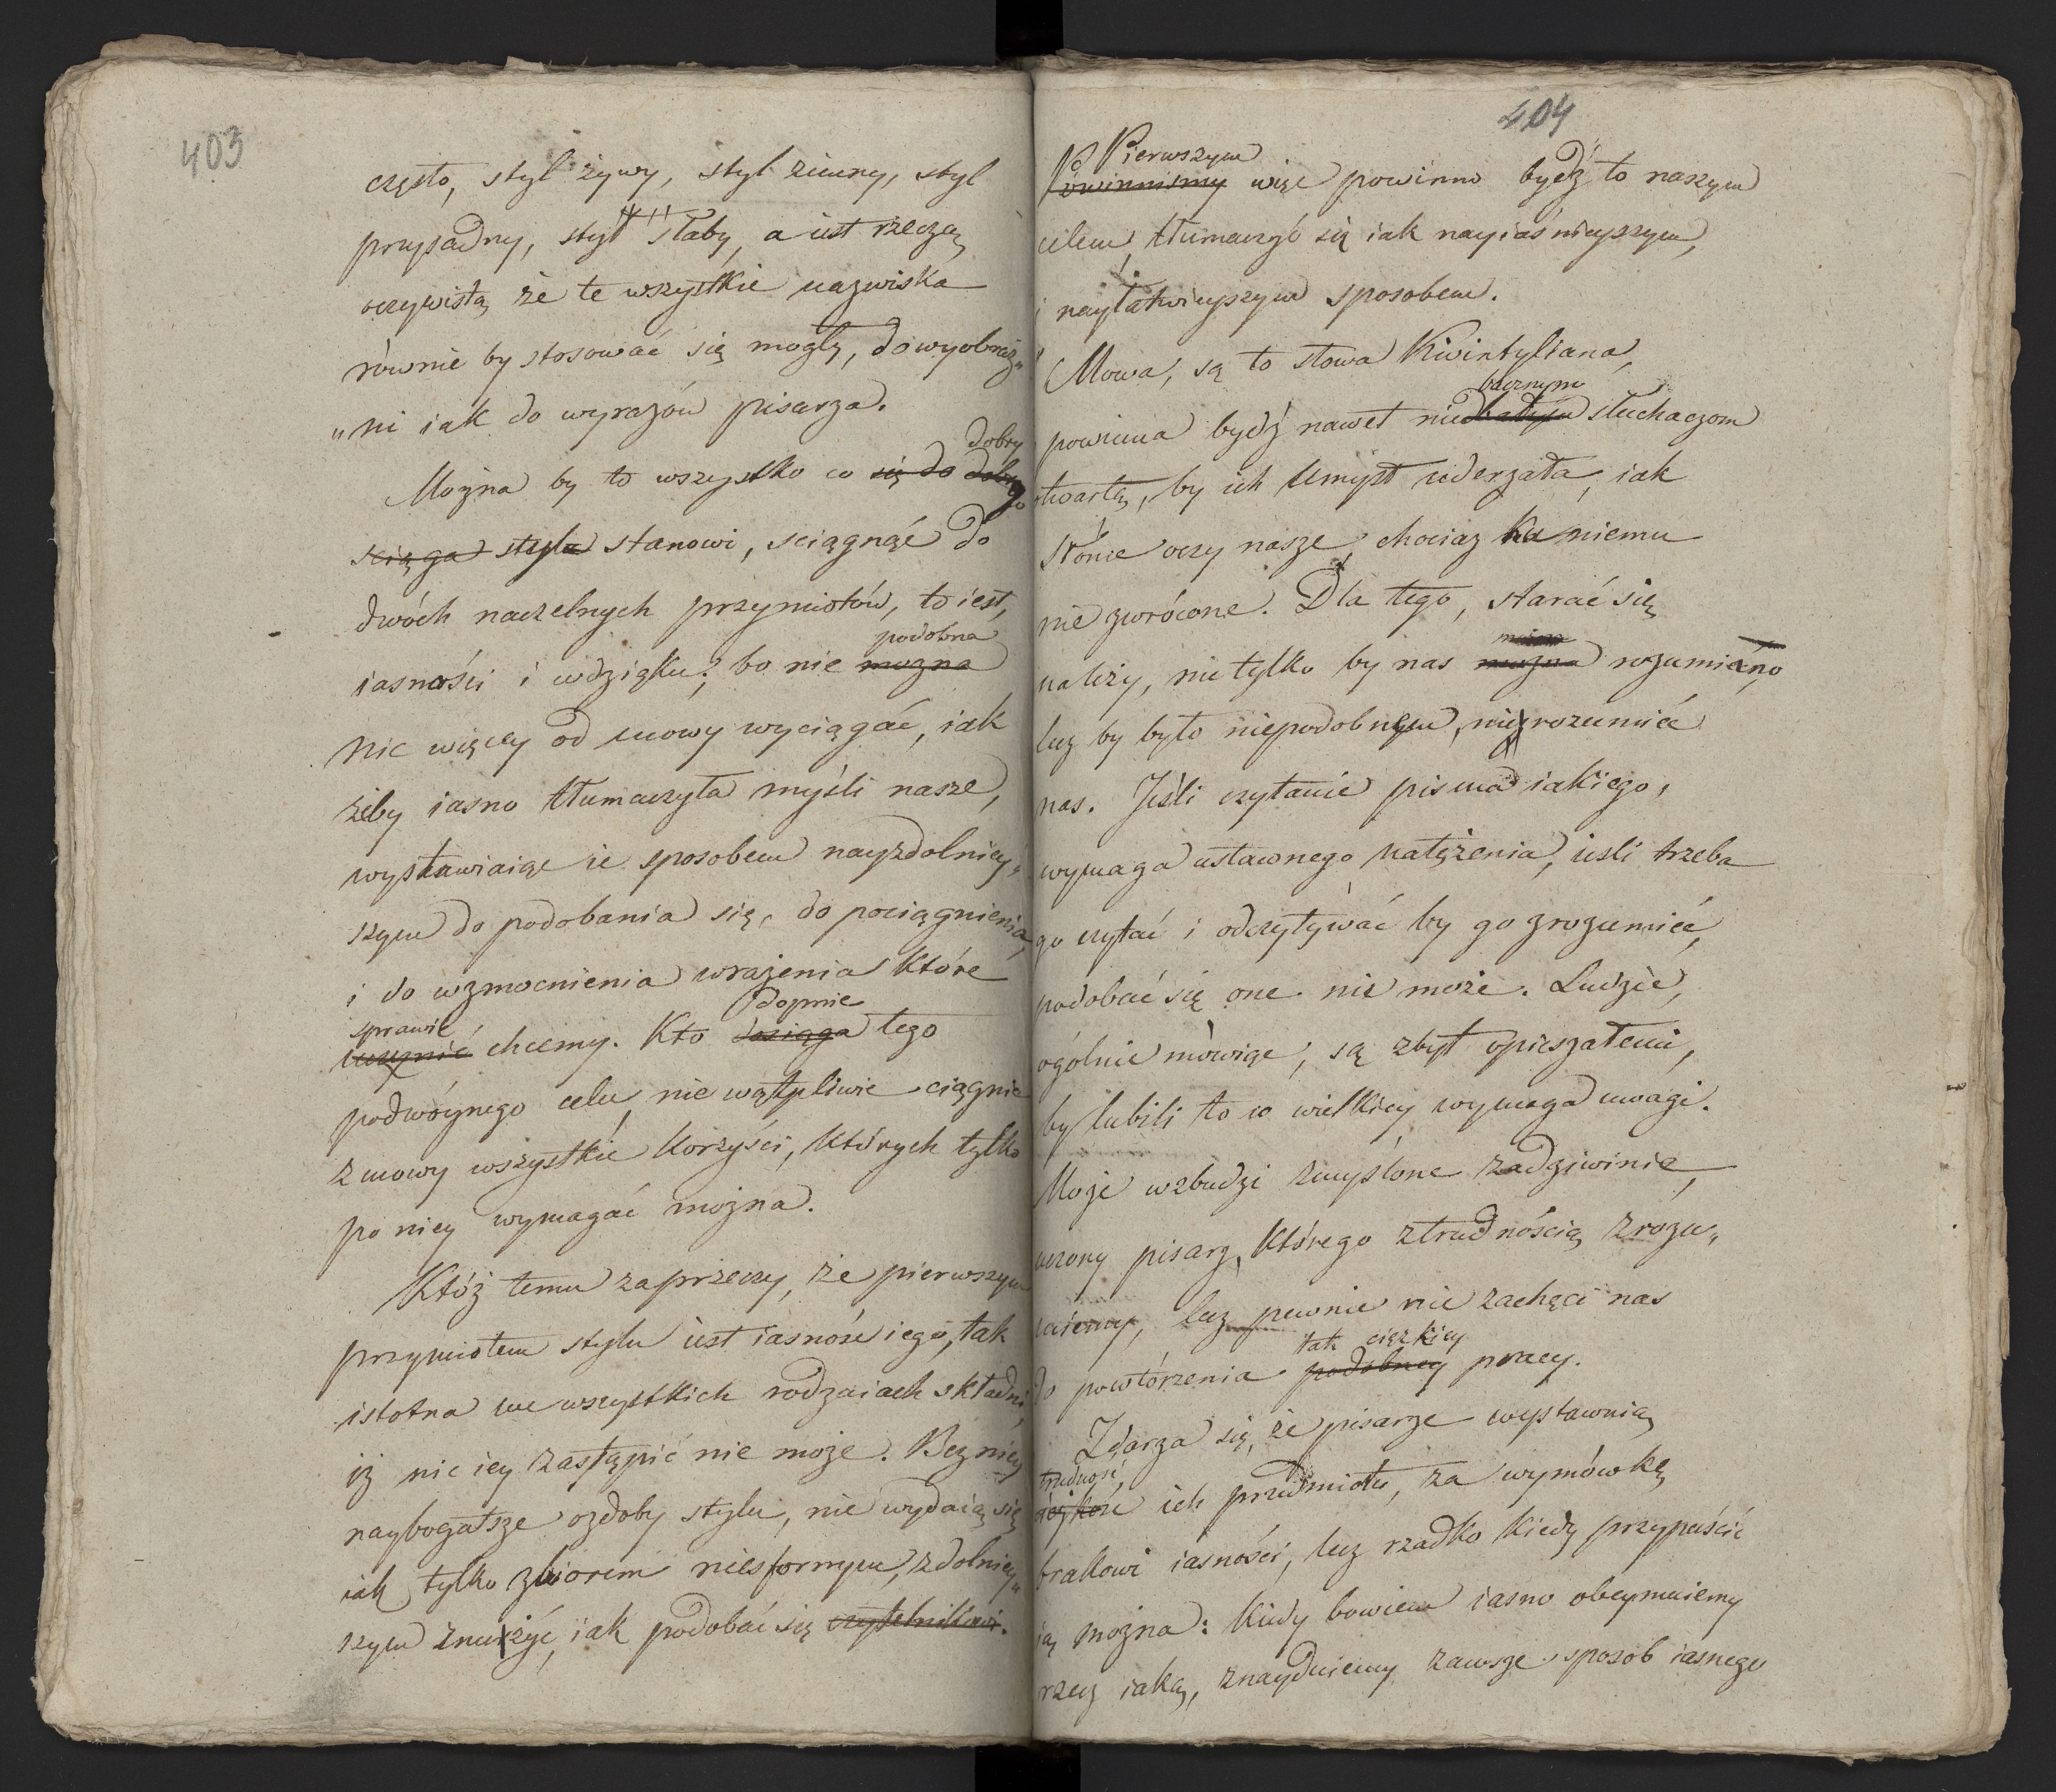 403
często, styl żywy, styl zimny, styl
przysadny, styl słaby, a iest rzeczą
oczywistą że te wszystkie nazwiska
równie by stosować się mogły, do wyobraże„
„ni iak do wyrazów pisarza.
dobry
Można by to wszystko co się do dobrego
sciąga stylu stanowi, sciągnąć do
dwóch naczelnych przymiotów, to iest,
podobna
iasności i wdzięku; bo nie mozna
nic więcey od mowy wyciągać, iak
żeby iasno tłumaczyła myśli nasze,
wystawiaiąc ie sposobem nayzdolniey„
szym do podobania się, do pociągnienia,
i do wzmocnienia wrażenia które
sprawić
dopnie
uczynić chcemy. Kto dosięga tego
podwóynego celu, nie wątpliwie ciągnie
z mowy wszystkie korzyści, których tylko
po niey wymagać można.
Któż temu zaprzeczy, że pierwszym
przymiotem stylu iest iasność iego, tak
istotna we wszystkich rodzaiach składni,
iż nic iey zastąpić nie może. Bez niey
naybogatsze ozdoby stylu, nie wydaią się
iak tylko zbiorem niesfornym, zdolniey„
szym znużyć, iak podobać się czytelnikowi.
404
Pierwszym
Powinnismy więc powinno bydź to naszym
celem, tłumaczyć się iak nayiaśnieyszym,
i nayłatwieyszym sposobem.
Mowa, są to słowa Kwintyliana,
bacznym
powinna bydź nawet niedbałym słuchaczom
otwartą, by ich umysł uderzała, iak
Słońce oczy nasze, chociaz ku niemu
nie zwrócone. Dla tego, starać się
należy, nie tylko by nas można rozumiéno,
lecz by było niepodobnym, nierozumieć
nas. Jeśli czytanie pisma iakiego,
wymaga ustawnego natężenia, iesli trzeba
go czytać i odczytywać by go zrozumieć,
podobać się one nie może. Ludzie,
ogólnie mówiąc, są zbyt opieszałemi,
by lubili to co wielkiey wymaga uwagi.
Może wzbudzi zmyślone zadziwinie,
uczony pisarz, którego z trudnością zrozu„
miemy, lecz pewnie nie zachęci nas
tak ciężkiey
do powtórzenia podobney pracy.
Zdarza się, że pisarze wystawuią
trudność,
ich przedmiotu, za wymówkę
brakowi iasności, lecz rzadko kiedy przypuścić
ią można: kiedy bowiem iasno obeymuiemy
rzecz iaką, znayduiemy zawsze sposób iasnego